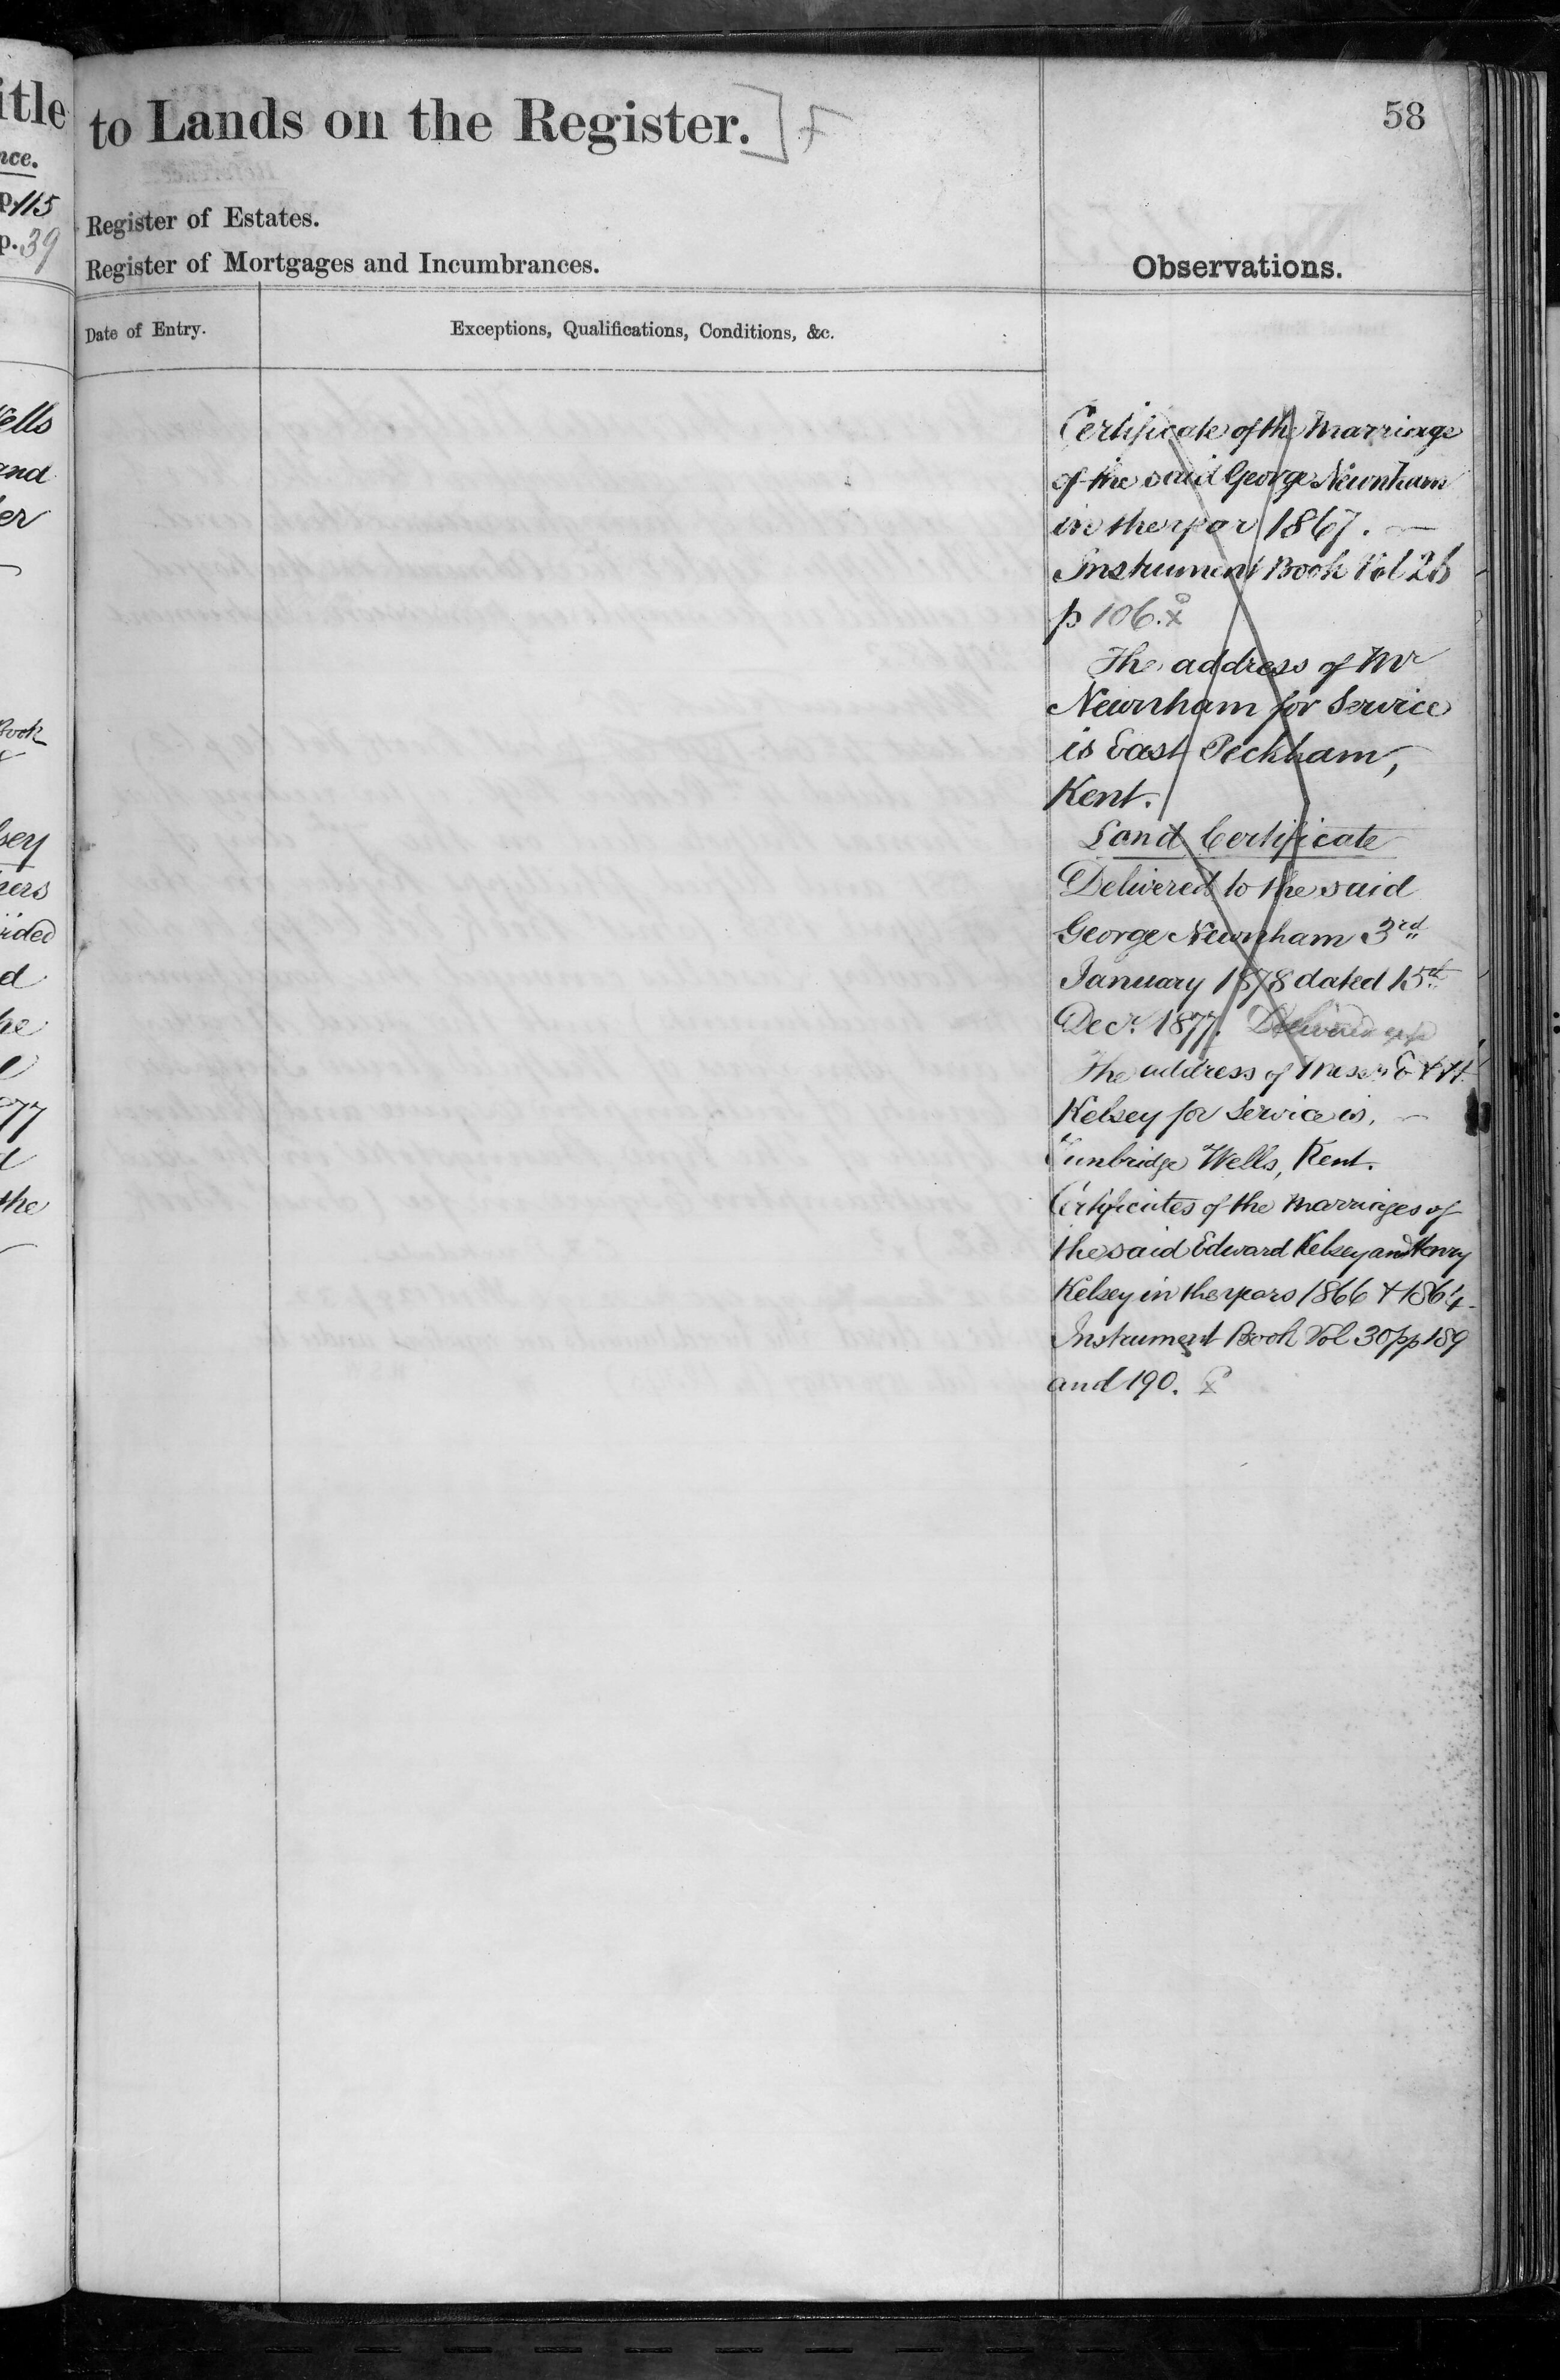 itle
nce.
p. 115
p. 39
ells
and
er
Book
sey
ners
ided
d
he
77
the
to Lands on the Register.] F
58
Register of Estates.
Register of Mortgages and Incumbrances.
Observations.
Date of Entry.
Exceptions, Qualifications, Conditions, &c.
Certificate of the Marriage
of the said George Newnham
in the year 1867. —
Instrument Book Vol 26
p 106.
The address of Mr
Newnham for Service
is East Peckham,
Kent.
Land Certificate
Delivered to the said
George Newnham 3rd
January 1878 dated 15th
Decr. 1877. Delivered up
The address of Messrs E & H
Kelsey for Service is. —
Tunbridge Wells, Kent.
Certificates of the Marriages of
the said Edward Kelsey and Henry
Kelsey in the years 1866 & 1864.
Instrument Book Vol 30 pp 189
and 190.